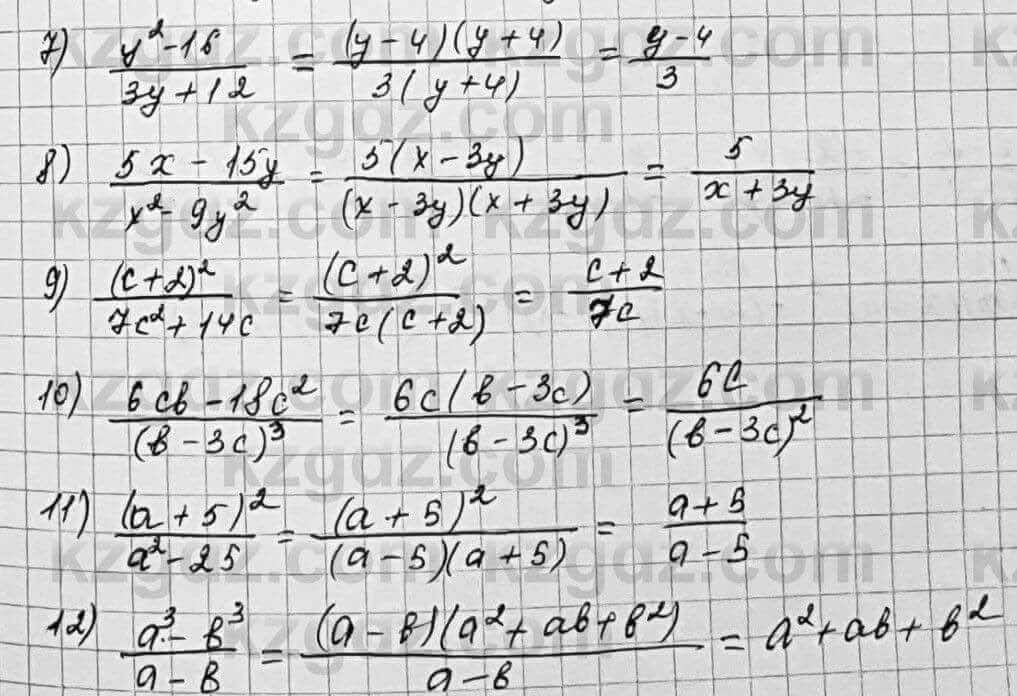 7) (y²-16)/(3y+12) = ((y-4)(y+4))/(3(y+4)) = (y-4)/3
8) (5x-15y)/(x²-9y²) = (5(x-3y))/((x-3y)(x+3y)) = 5/(x+3y)
9) (c+2)²/(7c²+14c) = (c+2)²/(7c(c+2)) = (c+2)/(7c)
10) (6cв-18c²)/(в-3c)³ = (6c(в-3c))/(в-3c)³ = 6c/(в-3c)²
11) (a+5)²/(a²-25) = (a+5)²/((a-5)(a+5)) = (a+5)/(a-5)
12) (a³-в³)/(a-в) = ((a-в)(a²+aв+в²))/(a-в) = a²+aв+в²
kzgdz.com